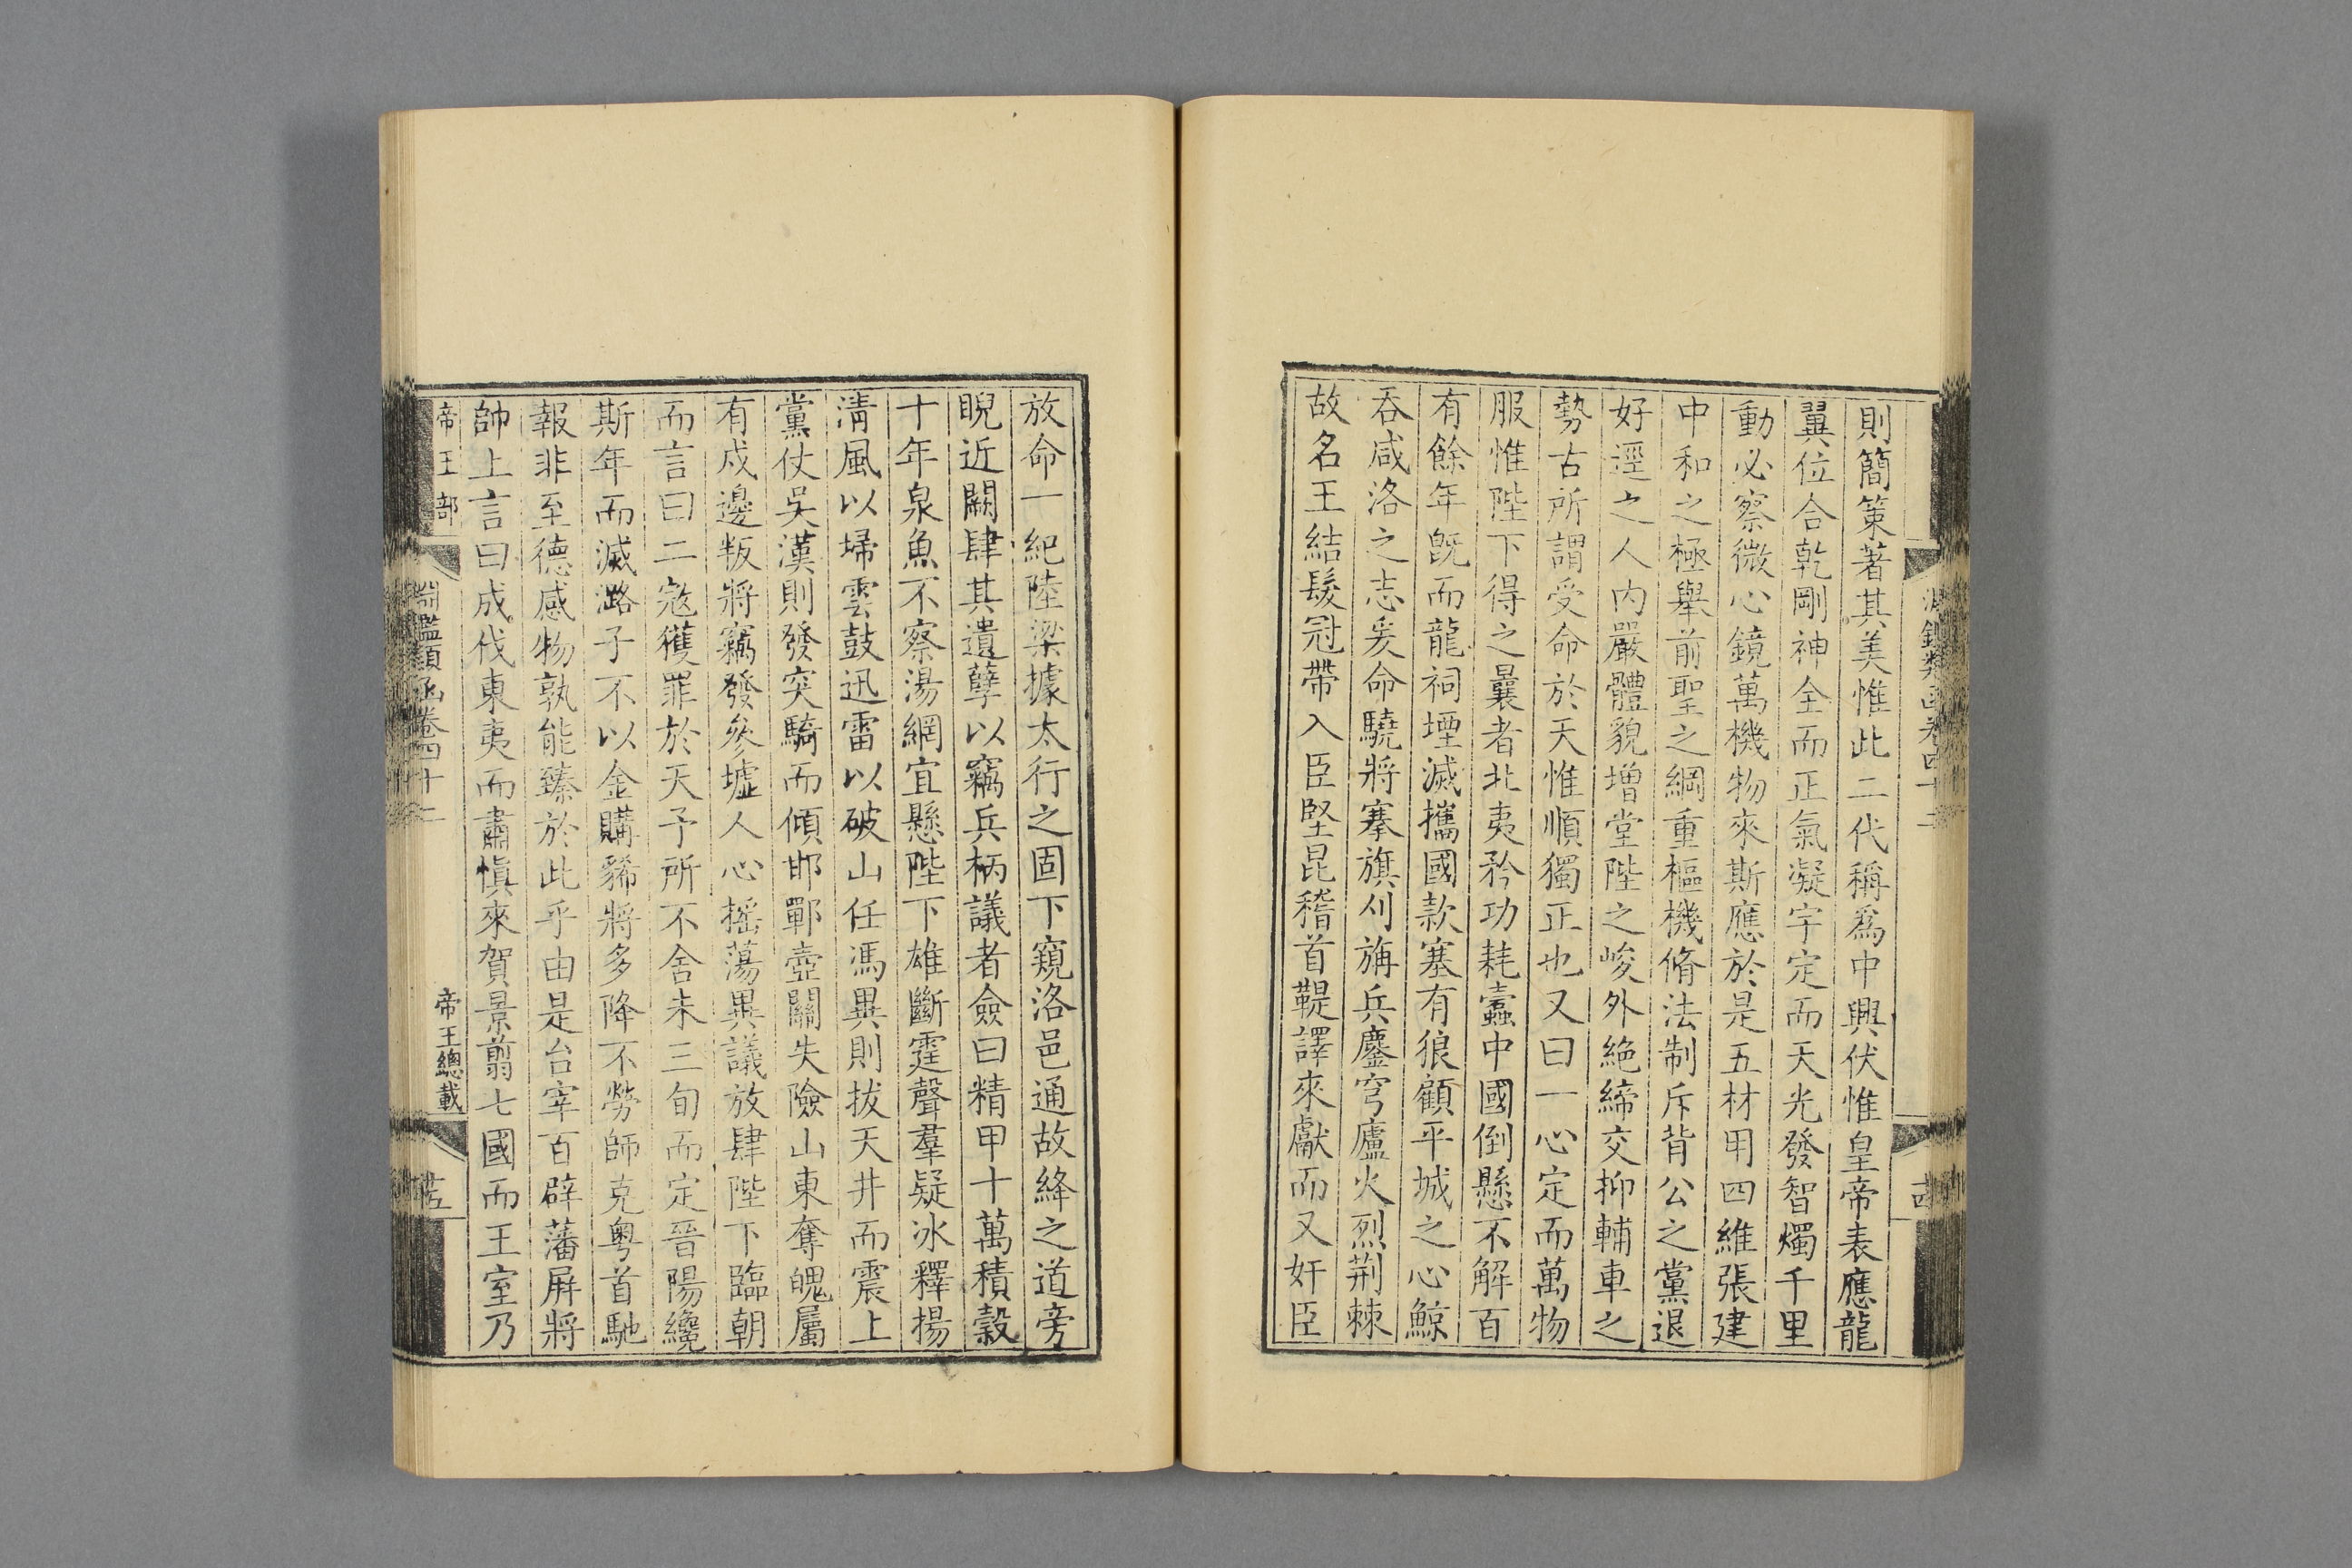 則簡策著其美惟此二代稱爲中興伏惟皇帝表應龍
翼位合乾剛神全而正氣凝宇定而天光發智燭千里
動必察微心鏡萬機物來斯應於是五材用四維張建
中和之極舉前聖之綱重樞機脩法制斥背公之黨退
好逕之人内嚴體貌增堂陛之峻外絶締交抑輔車之
勢古所謂受命於天惟順獨正也又曰一心定而萬物
服惟陛下得之曩者北夷矜功耗蠹中國倒懸不解百
有餘年旣而龍祠堙滅攜國款塞有狼顧平城之心鯨
吞咸洛之志爰命驍將搴旗刈旃兵鏖穹廬火烈荆棘
故名王結髮冠帶入臣堅昆稽首鞮譯來獻而又奸臣
放命一紀陸梁據太行之固下窺洛邑通故絳之道旁
睨近關肆其遺孽以竊兵柄議者僉曰精甲十萬積穀
十年泉魚不察湯網宜懸陛下雄斷霆聲羣疑冰釋揚
淸風以埽雲鼓迅雷以破山任馮異則拔天井而震上
黨仗吳漢則發突騎而傾邯鄲壺關失險山東奪魄屬
有戍邊叛將竊發參墟人心摇蕩異議放肆陛下臨朝
而言曰二寇獲罪於天予所不舍未三旬而定晉陽纔
斯年而滅潞子不以金購豨將多降不勞師克粤首馳
報非至德感物孰能臻於此乎由是台宰百辟藩屏將
帥上言曰成伐東夷而肅愼來賀景翦七國而王室乃
帝王部
淵鑑類函卷四十二
帝王總載